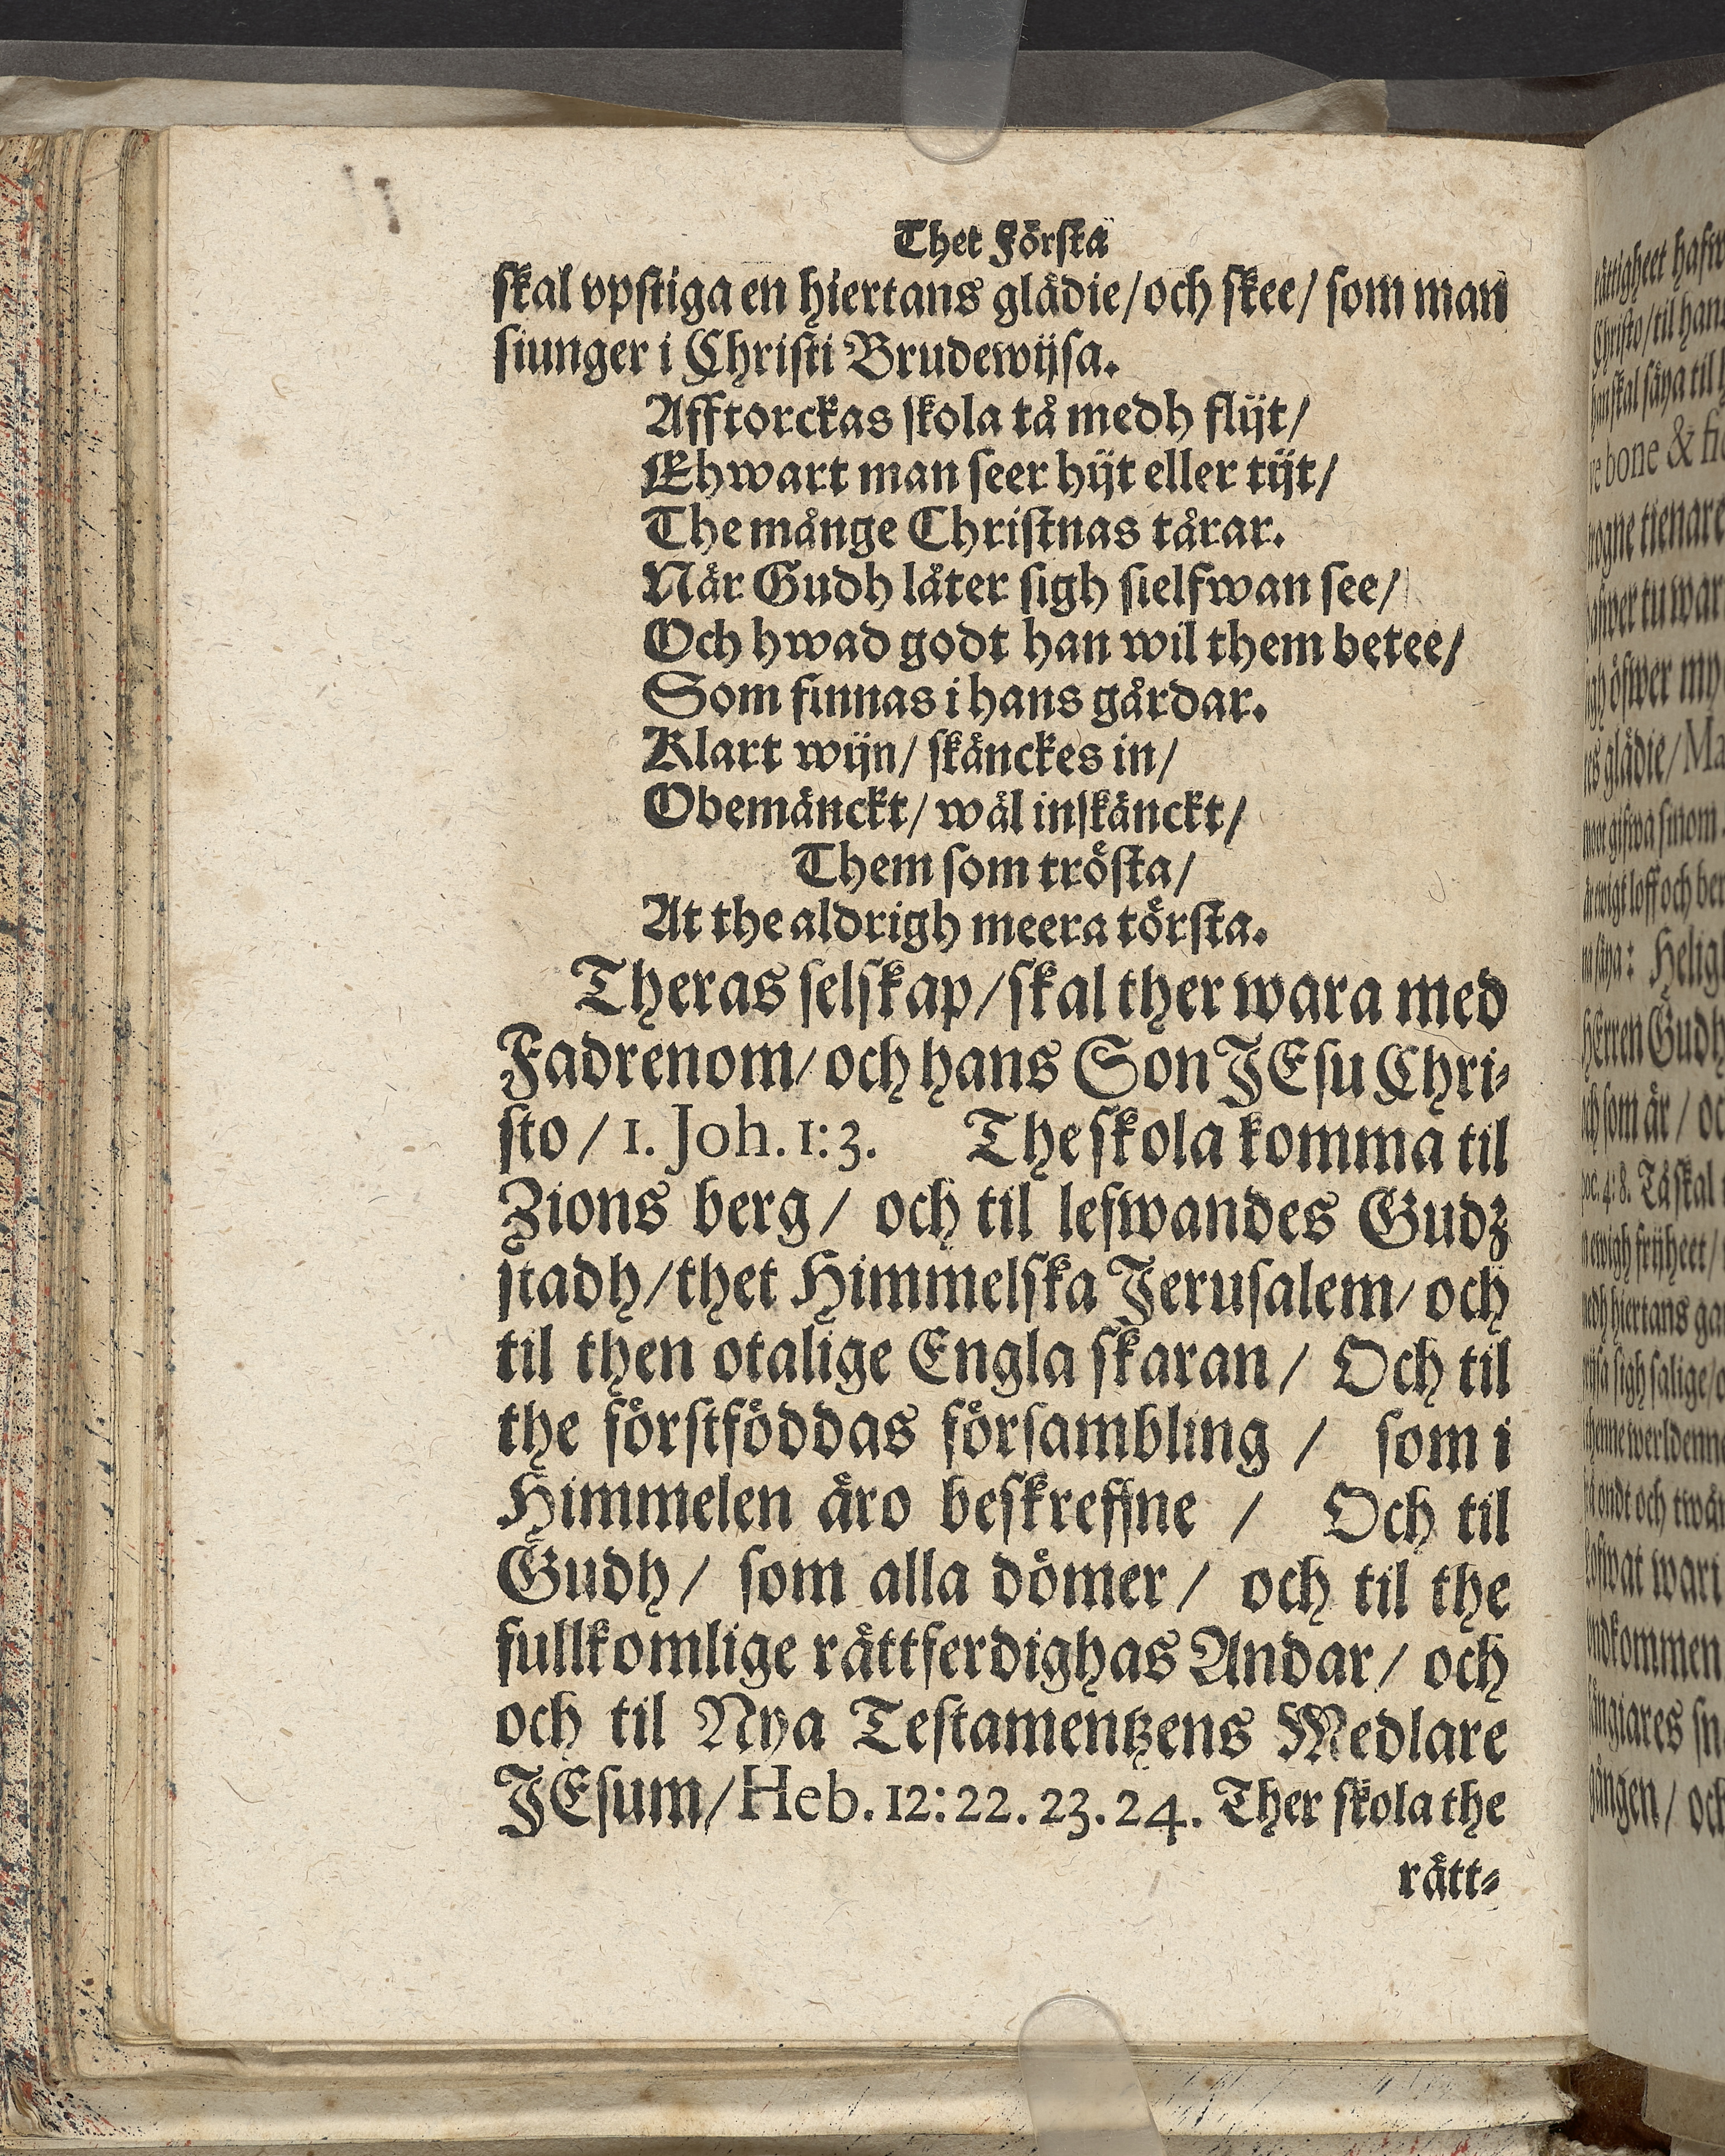 Thet Förſta
ſkal vpſtiga en hiertans glädie/och ſkee/ ſom man
ſiunger i Chriſti Brudewijſa.
Afftorckas ſkola tå medh flijt/
Ehwart man ſeer hijt eller tijt/
The månge Chriſtnas tårar.
När Gudh låter ſigh ſielfwan ſee/
Och hwad godt han wil them betee/
Som finnas i hans gårdar.
Klart wijn/ ſkänckes in/
Obemänckt/ wäl inſkänckt/
Them ſom tröſta/
At the aldrigh meera törſta.
Theras ſelſkap/ſkal ther wara med
Fadrenom/ och hans Son JEſu Chri-
ſto / 1. Joh. 1:3. The ſkola komma til
Zions berg/ och til lefwandes Gudz
ſtadh/thet Himmelſka Jeruſalem/ och
til then otalige Engla ſkaran/ Och til
the förſtföddas förſambling / ſom i
Himmelen äro beſkreffne / Och til
Gudh/ ſom alla dömer/ och til the
fullkomlige rättferdighas Andar/ och
och til Nya Teſtamentzens Medlare
JEſum/Heb. 12:22. 23. 24. Ther ſkola the
rätt-